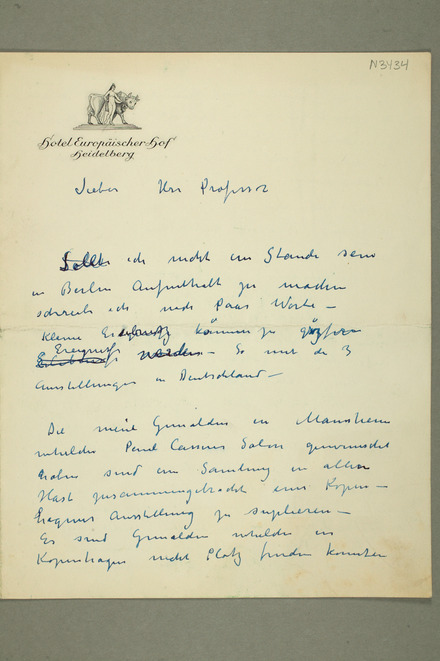 N3434
Hotel Europäischer Hof
Heidelberg
Lieber Herr Professor
Sollte ich nicht im Stande sein
in Berlin Aufenthalt zu machen
schreib ich noch Paar Worte –
kleine können zu
Ereignisse werden – So mit de 3
Ausstellungen in Deutschland –
Die meine Gemälden in Manheim
whelche Paul Cassirer Salon gewunschet
haben sind ein Samlung in aller
Hast zusammengebracht eine Kopen –
hagener Ausstellung zu suplieren –
Es sind Gemälden whelche in
Kopenhagen nicht Platz finden konnten